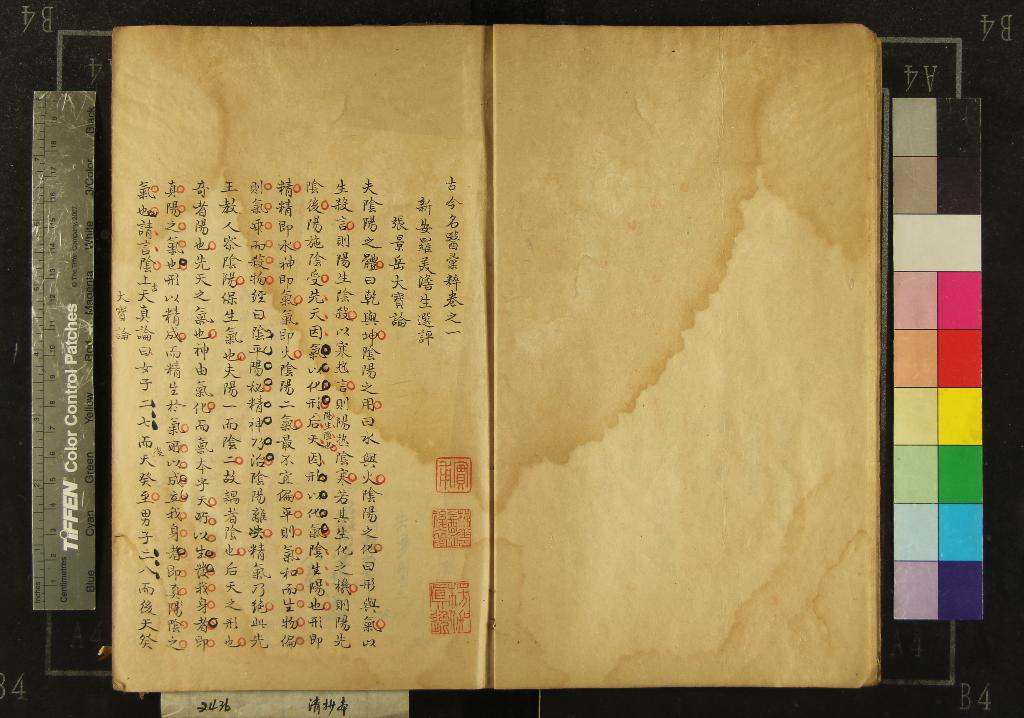 古今名醫彙粹卷之一
新安羅美澹生選評
張景岳大寶論
夫陰陽之體曰乾與坤陰陽之用曰水與火陰陽之化曰形與氣以
生殺言則陽生陰殺以寒热言則陽热陰寒若其生化之機則陽先
陰後陽施陰受先天因氣以化形后天因形以化氣陰生陽也形即
陽生陰也
精精即水神即氣氣即火陰陽二氣最不宜偏平則氣和而生物偏
則氣乖而殺物經曰陰平陽秘精神乃治陰陽離决精氣乃絕此先
王教人察陰陽保生氣也夫陽一而陰二故耦者陰也后天之形也
奇者陽也先天之氣也神由氣化而氣本乎天所以生我身者即
真陽之氣也形以精成而精生於氣所以成立我身者即真陽陰之
氣也請言陰上天真論曰女子二七而天癸至男子二八而後天癸
古
後
大寶論
TIFFEN Color Control Patches
© The Tiffen Company, 2007
Blue Cyan Green Yellow Red Magenta White 3/Color Black
Inches
Centimetres
2436 清抄本
B4
B4
A4
A4
A4
A4
B4
B4